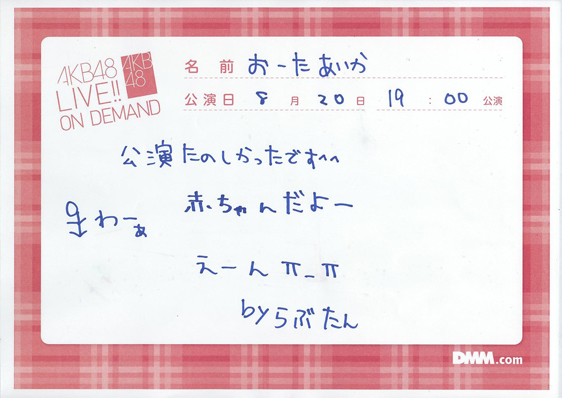 AKB48
LIVE!!
ON DEMAND
AKB
48
名前 おーたあいか
公演日 8月20日 19:00 公演
公演たのしかったです^^
赤ちゃんだよー
わーぁ
えーん π_π
byらぶたん
DMM.com